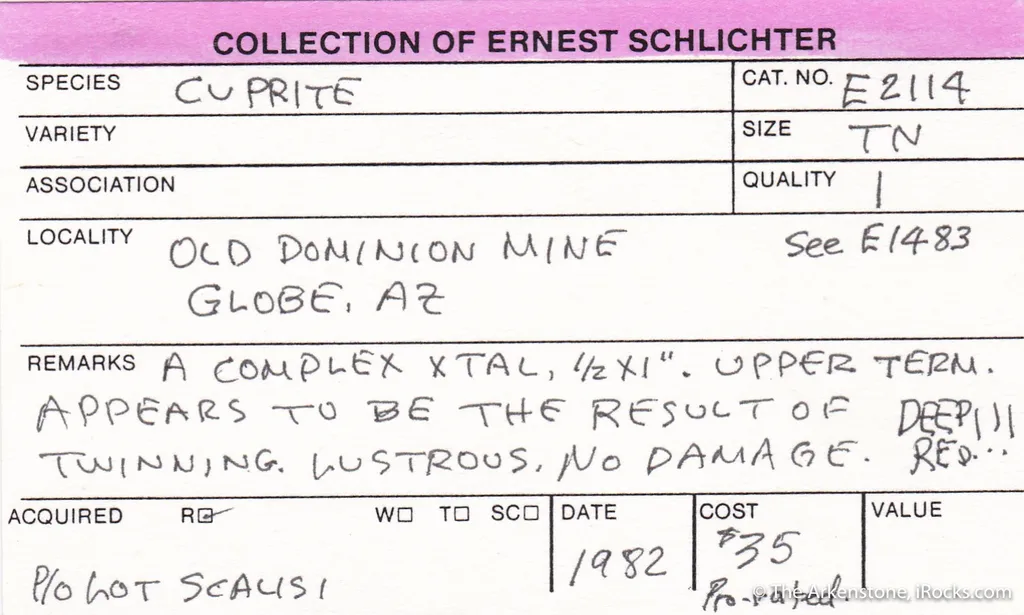 COLLECTION OF ERNEST SCHLICHTER
SPECIES CUPRITE
CAT. NO. E2114
VARIETY
SIZE TN
ASSOCIATION
QUALITY 1
LOCALITY OLD DOMINION MINE See E1483
GLOBE, AZ
REMARKS A COMPLEX XTAL, 1/2 X 1". UPPER TERM.
APPEARS TO BE THE RESULT OF DEEP!!!
TWINNING. LUSTROUS, NO DAMAGE. RED...
ACQUIRED R☑ W☐ T☐ SC☐ DATE COST VALUE
1982 $35
P/O LOT SCALISI Pro-rated.
© The Arkenstone, iRocks.com